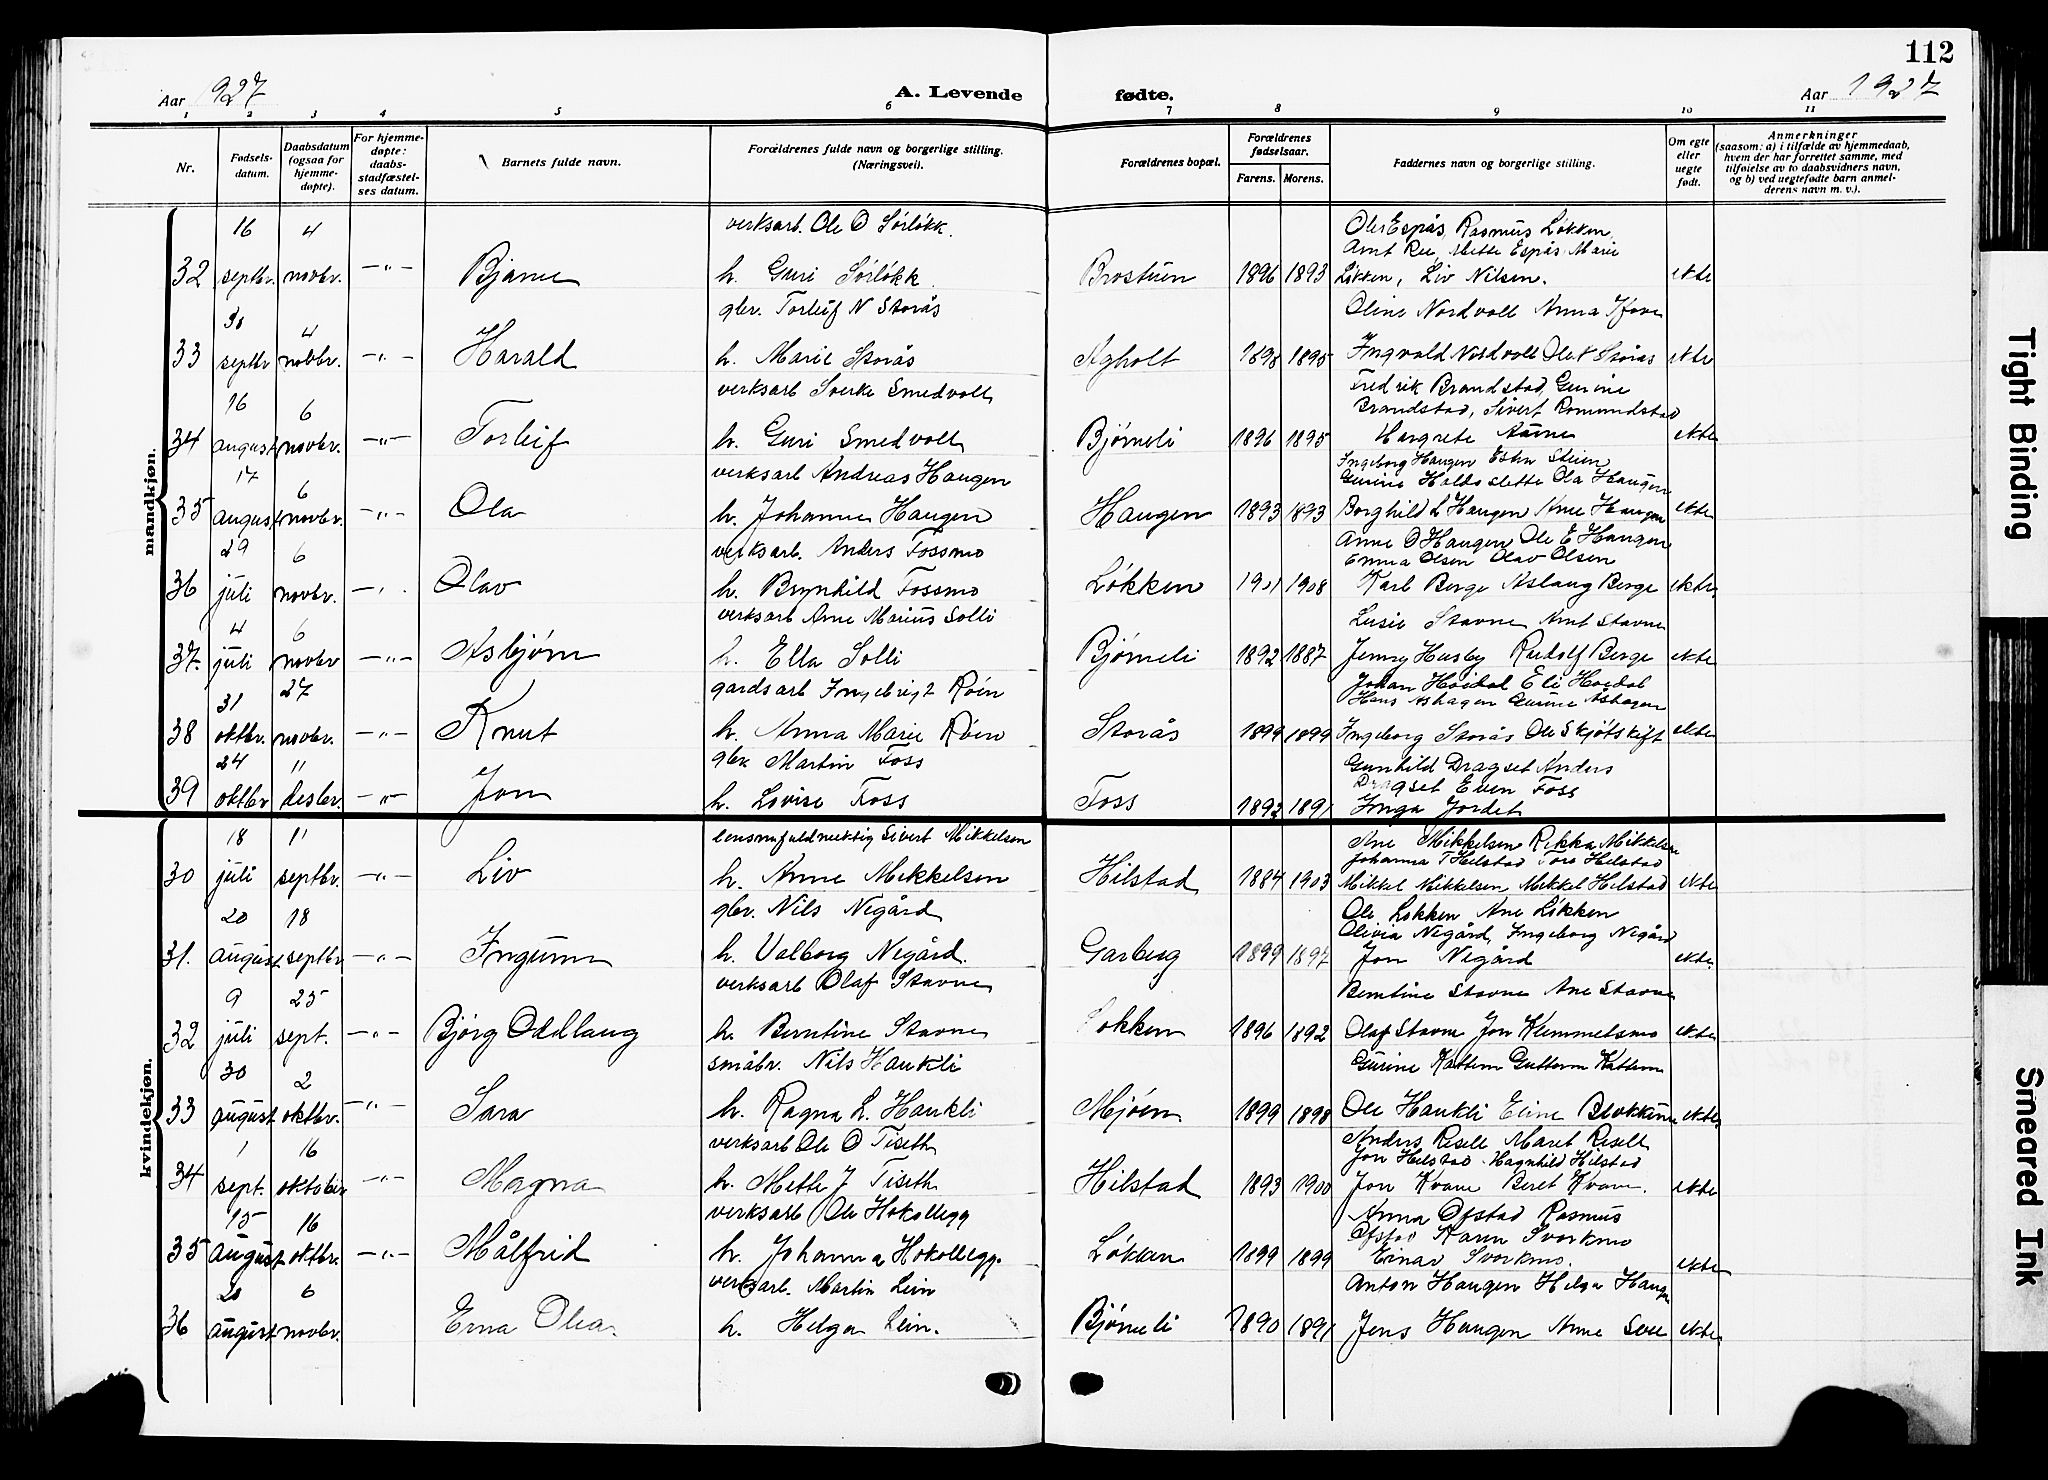 112
Aar 1927
A. Levende
fødte.
Aar 1927
1 2 3 4 5 6 7 8 9 10 11
Nr.
Fødsels-
datum.
Daabsdatum
(ogsaa for
hjemme-
døpte).
For hjemme-
døpte:
daabs-
stadfæstel-
ses datum.
Barnets fulde navn.
Forældrenes fulde navn og borgerlige stilling.
(Næringsvei).
Forældrenes bopæl.
Forældrenes
fødselsaar.
Farens. Morens.
Faddernes navn og borgerlige stilling.
Om egte
eller
uegte
født.
Anmerkninger
(saasom: a) i tilfælde av hjemmedaab,
hvem der har forrettet samme, med
tilføielse av to daabsvidners navn,
og b) ved uegtefødte barn anmel-
derens navn m. v.).
mandkjøn.
16 4 verksarb. Ole O Sørløkk. Ole Espås, Rasmus Løkken,
Arnt Ree, Mette Espås, Marie
32 septbr. novbr. —"— Bjarne h. Guri Sørløkk. Brostuen 1896 1893 Løkken, Liv Nilsen. ekte
30 4 gbr. Torleif N Storås Oline Nordvoll Anna
33 septbr novbr. —"— Harald h. Marie Storås Agholt 1898 1895 Ingvald Nordvoll Ole K Storås ekte
16 6 verksarb Sverke Smedvoll Fredrik Brandstad, Gurine
Brandstad, Sivert Romundstad
34 august novbr. —"— Torleif h. Guri Smedvoll Bjørneli 1896 1895 Margrete Aune ekte
17 6 verksarb Andreas Haugen Ingeborg Haugen Esten Steien
Gurine Holdsslette Ola Haugen
35 august novbr. —"— Ola h. Johanne Haugen Haugen 1893 1893 Borghild L Haugen Ane Haugen ekte
29 6 verksarb. Anders Fossmo Anne O Haugen Ole E Haugen
Emma Olsen Olav Olsen
36 juli novbr. —"— Olav h. Brynhild Fossmo Løkken 1901 1908 Karl Berge Aslaug Berge ekte
4 6 verksarb Arne Marius Solli Lusie Stavne Arnt Stavne
37. juli novbr —"— Asbjørn h. Ella Solli Bjørneli 1892 1887 Jenny Husby Rudolf Berge ekte
31 27 gardsarb Ingebrigt Røen Johan Hoidal Eli Hoidal
Hans Ashagen Gurine Åshagen
38 oktbr. novbr. —"— Knut h. Anna Marie Røen Storås 1899 1899 Ingeborg Storås Ole Skjøtskift ekte
24 11 gbr. Martin Foss Gunhild Dragset Anders
Dragset Even Foss
39 oktbr desbr. —"— Jon h. Lovise Foss Foss 1892 1891 Inga Jordet
kvindekjøn.
18 11 lensmfuldmektig Sivert Mikkelsen Ane Mikkelsen Rikka Mikkelsen
Johanna T Hilstad Tore Hilstad
30 juli septbr. —"— Liv h. Anne Mikkelsen Hilstad 1884 1903 Mikkel Mikkelsen Mikkel Hilstad ekte
20 18 gbr. Nils Negård Ole Løkken Ane Løkken
Olivia Negård, Ingeborg Negård
31. august septbr —"— Ingunn h. Valborg Negård. Garberg 1899 1897 Jon Negård ekte.
9 25 verksarb Olaf Stavne Berntine Stavne Ane Stavne
32 juli sept. —"— Bjørg Oddlaug h. Berntine Stavne Løkken 1896 1892 Olaf Stavne Jon Kummelsmo ekte
30 2 småbr. Nils Haukli Gurine Kattem Guttorm Kattem
33 august oktbr. —"— Sara h. Ragna L. Haukli Mjøen 1899 1898 Ole Haukli Eline Blokkum ekte
1 16 verksarb Ole O Tiseth Anders Resell Maret Resell
Jon Hilstad Magnhild Hilstad
34 sept. oktober —"— Magna h. Mette J Tiseth Hilstad 1893 1900 Jon Kvam Beret Kvam. ekte
15 16 verksarb Ole Hokollegg Anna Ofstad Rasmus
Ofstad Karen Svorkmo
35 august oktbr. —"— Målfrid h. Johanna Hokollegg. Løkken 1899 1899 Einar Svorkmo. ekte
20 6 verksarb. Martin Lein Anton Haugen Helga Haugen
36 august novbr. Erna Olea. h. Helga Lein. Bjørneli 1890 1891 Jens Haugen Anne See ekte
Tight Binding
Smeared Ink